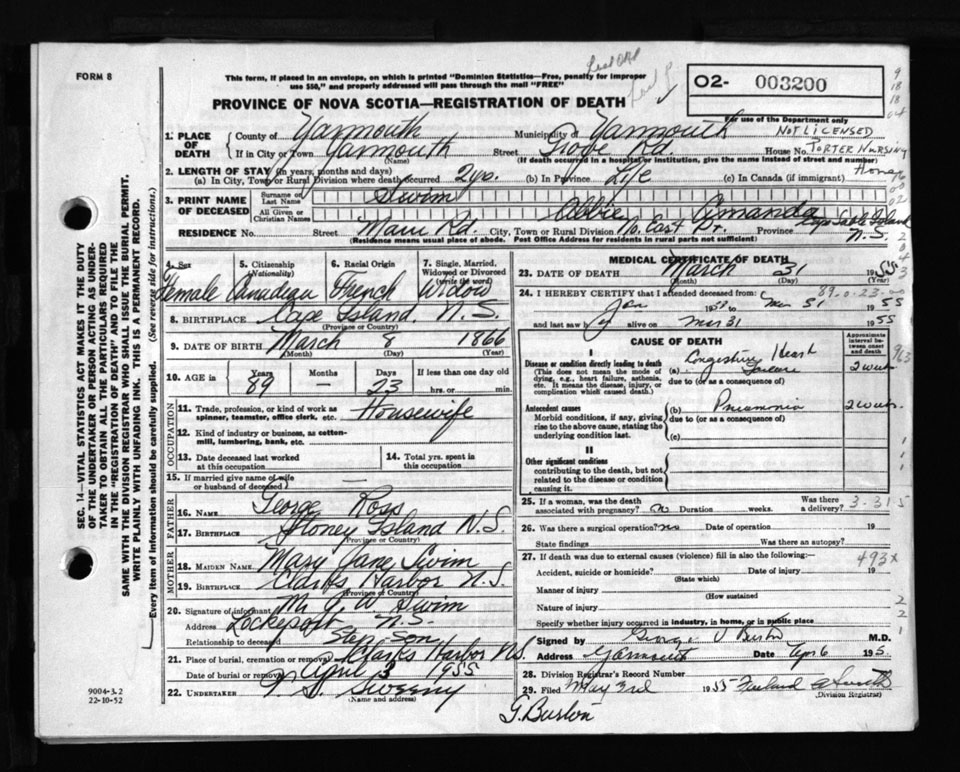 FORM 8
This form, if placed in an envelope, on which is printed "Dominion Statistics—Free, penalty for improper
use $50," and properly addressed will pass through the mail "FREE"
O2- 003200
PROVINCE OF NOVA SCOTIA—REGISTRATION OF DEATH
For use of the Department only
NOT LICENSED
1. PLACE OF DEATH
County of Yarmouth Municipality of Yarmouth
If in City or Town Yarmouth Street Grove Rd. House No. PORTER NURSING Home
(Name) (If death occurred in a hospital or institution, give the name instead of street and number)
2. LENGTH OF STAY (in years, months and days)
(a) In City, Town or Rural Division where death occurred 2 yo. (b) In Province Life (c) In Canada (if immigrant)
3. PRINT NAME OF DECEASED
Surname or Last Name Swim
All Given or Christian Names Abbie Amanda
RESIDENCE No. Street Main Rd. City, Town or Rural Division No. East Pt. Province Cape Sable Island N.S.
(Residence means usual place of abode. Post Office Address for residents in rural parts not sufficient)
4. Sex Female
5. Citizenship (Nationality) Canadian
6. Racial Origin French
7. Single, Married, Widowed or Divorced (write the word) Widow
8. BIRTHPLACE Cape Island N.S.
(Province or Country)
9. DATE OF BIRTH March 8 1866
(Month) (Day) (Year)
10. AGE IN Years 89 Months — Days 23 If less than one day
hrs. or min.
OCCUPATION
11. Trade, profession, or kind of work as
spinner, teamster, office clerk, etc. Housewife
12. Kind of industry or business, as cotton-
mill, lumbering, bank, etc.
13. Date deceased last worked
at this occupation
14. Total yrs. spent in
this occupation
15. If married give name of wife
or husband of deceased —
FATHER
16. NAME George Ross
17. BIRTHPLACE Stoney Island N.S.
(Province or Country)
MOTHER
18. MAIDEN NAME Mary Jane Swim
19. BIRTHPLACE Clarks Harbor N.S.
(Province or Country)
20. Signature of informant Mr. J. W. Swim
Address Lockeport N.S.
Relationship to deceased Step Son
21. Place of burial, cremation or removal Clarks Harbor N.S.
Date of burial or removal April 3 1955
22. UNDERTAKER Sweeny
(Name and address)
MEDICAL CERTIFICATE OF DEATH
23. DATE OF DEATH March 31 1955
(Month) (Day) (Year)
24. I HEREBY CERTIFY that I attended deceased from: 89.0.23.00
Jan to Mar 31 1955
and last saw h alive on Mar 31 1955
CAUSE OF DEATH
Approximate interval between onset and death
I
Disease or condition directly leading to death
(This does not mean the mode of
dying, e.g., heart failure, asthenia,
etc. It means the disease, injury, or
complication which caused death.)
(a) Congestive Heart Failure
due to (or as a consequence of) 2 weeks
Antecedent causes
Morbid conditions, if any, giving
rise to the above cause, stating the
underlying condition last.
(b) Pneumonia 2 weeks
due to (or as a consequence of)
(c)
II
Other significant conditions
contributing to the death, but not
related to the disease or condition
causing it.
25. If a woman, was the death
associated with pregnancy? no Duration weeks. Was there
a delivery? 3.31 5
26. Was there a surgical operation? no Date of operation 19
State findings Was there an autopsy?
27. If death was due to external causes (violence) fill in also the following:—
493x
Accident, suicide or homicide? Date of injury 19
(State which)
Manner of injury
(How sustained
Nature of injury
Specify whether injury occurred in industry, in home, or in public place
Signed by George V Burton M.D.
Address Yarmouth Date Apr 6 195
28. Division Registrar's Record Number
29. Filed May 3rd 1955
(Division Registrar)
G. Burton
9004-3.2
22-10-52
SEC. 14—VITAL STATISTICS ACT MAKES IT THE DUTY
OF THE UNDERTAKER OR PERSON ACTING AS UNDER-
TAKER TO OBTAIN ALL THE PARTICULARS REQUIRED
IN THE "REGISTRATION OF DEATH" AND TO FILE THE
SAME WITH THE DIVISION REGISTRAR WHO SHALL ISSUE THE BURIAL PERMIT.
WRITE PLAINLY WITH UNFADING INK. THIS IS A PERMANENT RECORD.
Every item of information should be carefully supplied. (See reverse side for instructions.)